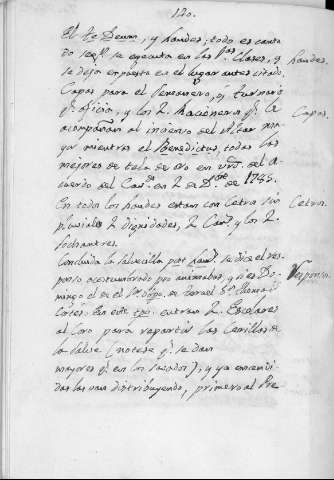 120.
El Te Deum, y Laudes, todo es canta
do segn. se egecuta en las pras. Clases, y Laudes.
se deja expuesta en el lugar antes citado,
Capas para el Semanero, ó turnario Capas.
qe. oficia, y los 2 Racioneros qe. le
acompañan al incienso del Altar ma-
yor mientras el Benedictus, todas las
mejores de tela de oro en vrd. del A-
cuerdo del Cavdo. en 2 de Dbre. de 1785.
En todos los Laudes estan con Cetro sin Cetros.
pluviales 2 dignidades, 2 Canos. y los 2
Sochantres.
Concluida la Salvecilla post Laud. se dice el res- Responso.
ponso acostumbrado pro animabus, y si es Do-
mingo el de el Sr. Obpo. de Teruel Dn.
Cortes. En este tpo. entran 2 Escolares
al Coro para repartir las Cerillas de
la Salve (notese qe. se dan
mayores qe. en los Sacados), y ya encendi
das las van distribuyendo, primero al Pre-